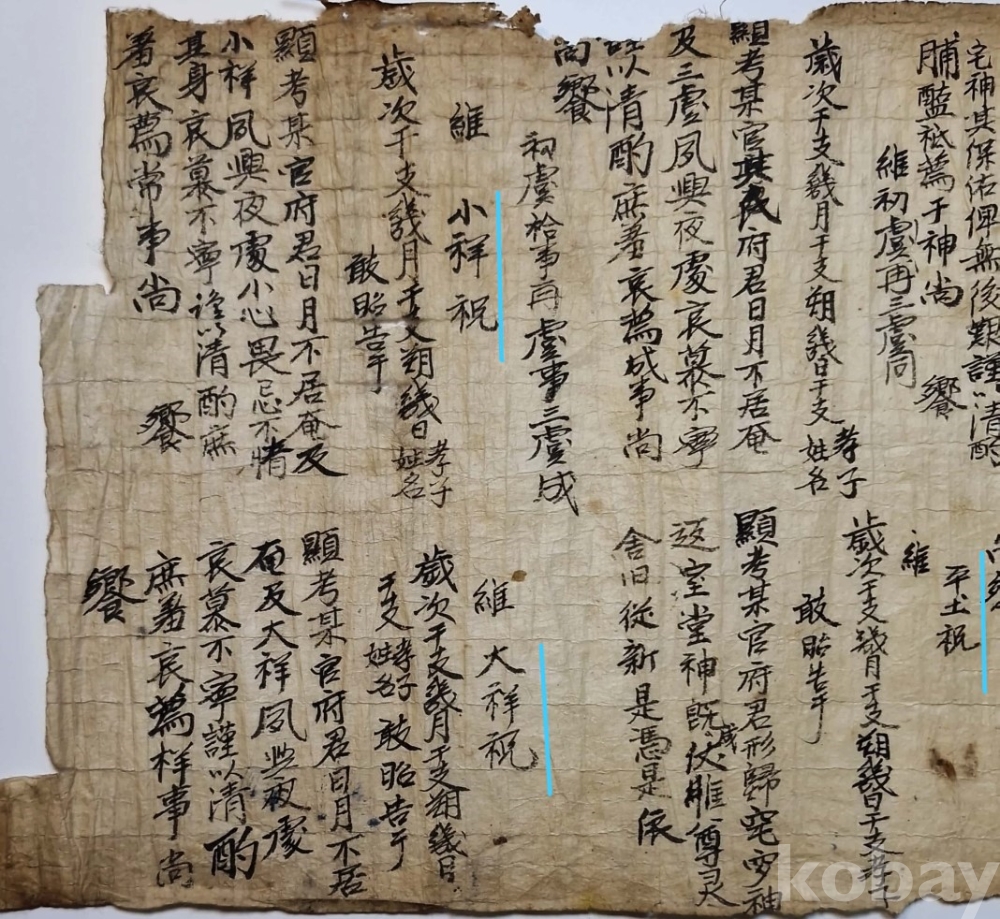 宅神其保佑俾無後艱謹以清酌
脯醢祗薦于神尚
饗
維初虞再三虞同
歲次干支幾月干支朔幾日干支孝子
姓名
顯考某官府君日月不居奄
及三虞夙興夜處哀慕不寧
以清酌庶羞哀薦成事尚
尚饗
初虞祫事再虞事三虞成
小祥祝
維
歲次干支幾月干支朔幾日孝子
姓名
敢昭告于
顯考某官府君日月不居奄及
小祥夙興夜處小心畏忌不惰
其身哀慕不寧謹以清酌庶
羞哀薦常事尚
饗
平土祝
維
歲次干支幾月干支朔幾日干支孝子
敢昭告于
顯考某官府君形歸窀穸神
返室堂神既成伏惟尊灵
舍旧從新是憑是依
大祥祝
維
歲次干支幾月干支朔幾日
干支孝子姓名敢昭告于
顯考某官府君日月不居
奄及大祥夙興夜處
哀慕不寧謹以清酌
庶羞哀薦祥事尚
饗
kobay